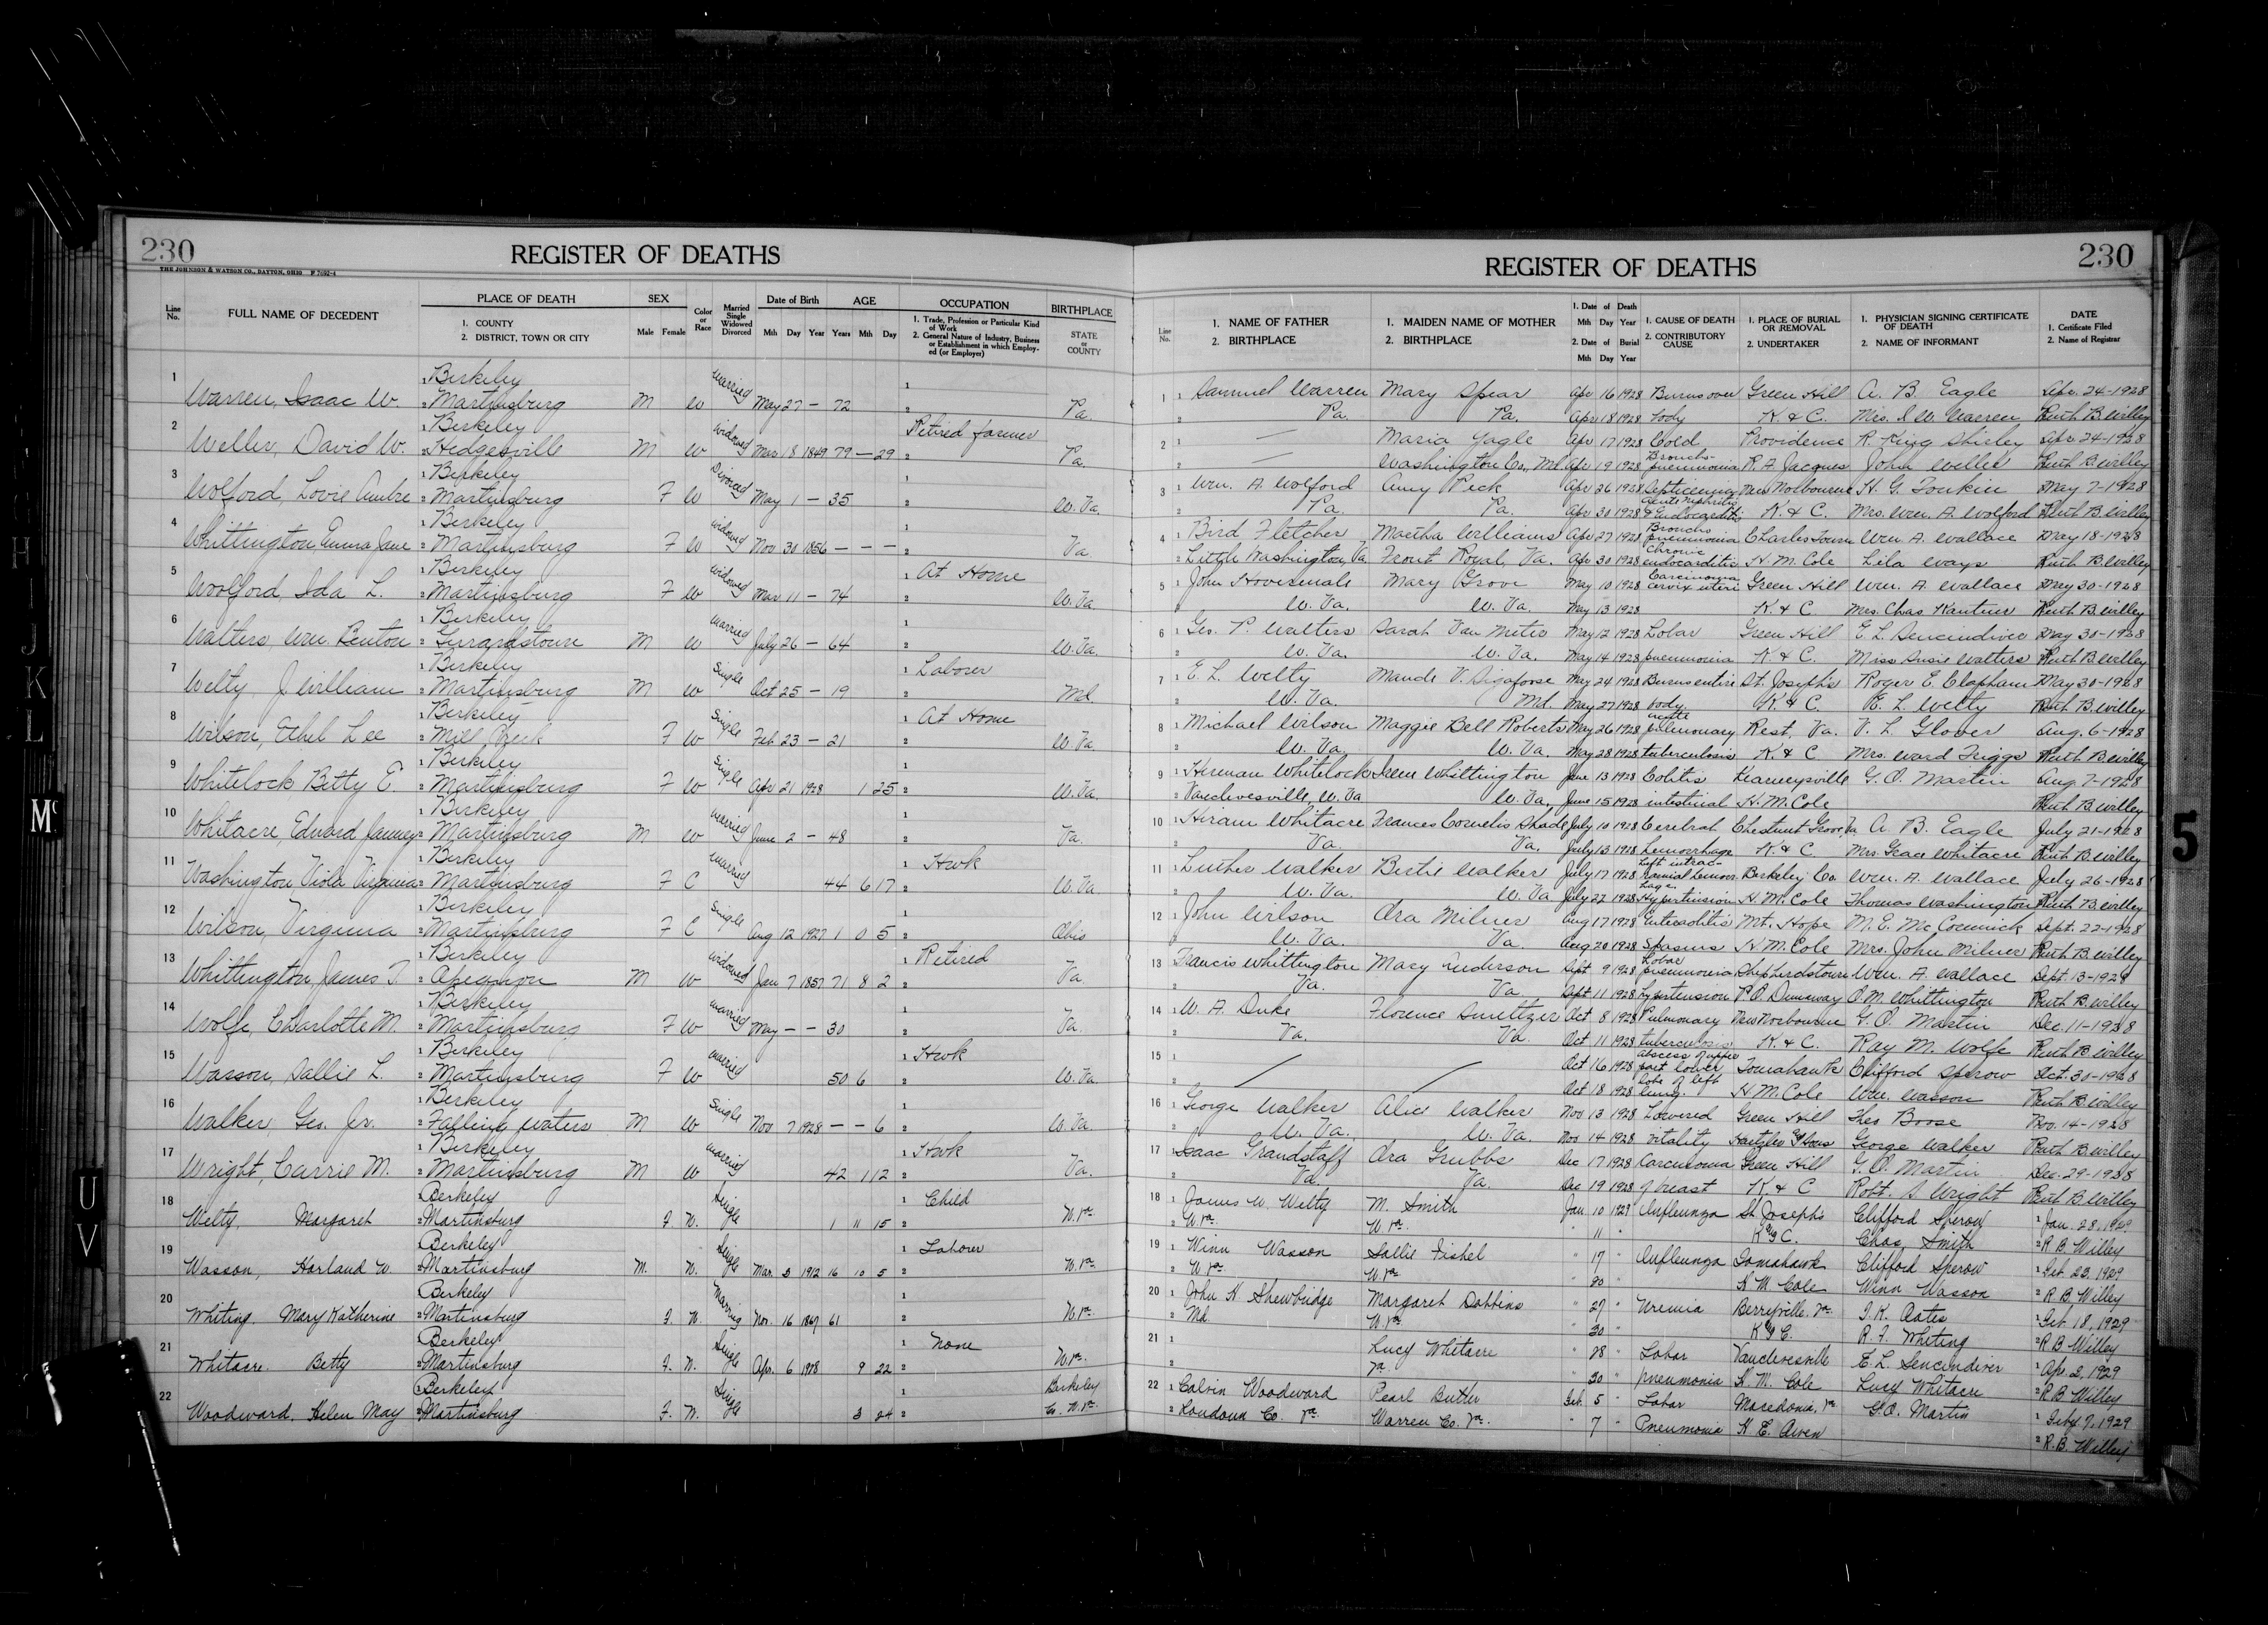 230
REGISTER OF DEATHS
THE JOHNSON & WATSON CO., DAYTON, OHIO P 7692-4
Line No. FULL NAME OF DECEDENT PLACE OF DEATH 1. COUNTY 2. DISTRICT, TOWN OR CITY SEX Male Female Color or Race Married Single Widowed Divorced Date of Birth Mth Day Year AGE Years Mth Day OCCUPATION 1. Trade, Profession or Particular Kind of Work 2. General Nature of Industry, Business or Establishment in which Employed (or Employer) BIRTHPLACE STATE or COUNTY
1 1 Berkeley 1
Warren, Isaac W. 2 Martinsburg M W married May 27 – 72 2 Pa.
2 1 Berkeley 1 Retired farmer
Weller, David W. 2 Hedgesville M W widowed Mar 18 1849 79 – 29 2 Pa.
3 1 Berkeley 1
Wolford, Lovie 2 Martinsburg F W Divorced May 1 – 35 2 W. Va.
4 1 Berkeley 1
Whittington, Emma Jane 2 Martinsburg F W widowed Nov 30 1856 – – – 2 Va.
5 1 Berkeley 1 At Home
Woolford, Ida L. 2 Martinsburg F W widowed Mar 11 – 74 2 W. Va.
6 1 Berkeley 1
Walters, Wm. Benton 2 Gerrardstown M W married July 26 – 64 2 W. Va.
7 1 Berkeley 1 Laborer
Welty, J William 2 Martinsburg M W single Oct 25 – 19 2 Md.
8 1 Berkeley 1 At Home
Wilson, Ethel Lee 2 Mill Creek F W single Feb 23 – 21 2 W. Va.
9 1 Berkeley 1
Whitelock Betty E. 2 Martinsburg F W single Apr 21 1928 1 25 2 W. Va.
10 1 Berkeley 1
Whitacre, Edward Janney 2 Martinsburg M W married June 2 – 48 2 Va.
11 1 Berkeley 1 Hwk
Washington, Viola Virginia 2 Martinsburg F C married 44 6 17 2 W. Va.
12 1 Berkeley 1
Wilson, Virginia 2 Martinsburg F C single Aug 12 1927 1 0 5 2 Ohio
13 1 Berkeley 1 Retired
Whittington, James T. 2 Opequon M W widowed Jan 7 1857 71 8 2 2 Va.
14 1 Berkeley 1
Wolfe, Charlotte M. 2 Martinsburg F W married May – – 30 2 Va.
15 1 Berkeley 1 Hwk
Wasson, Sallie L. 2 Martinsburg F W married 50 6 2 W. Va.
16 1 Berkeley 1
Walker, Geo. Jr. 2 Falling Waters M W single Nov 7 1928 – – 6 2 W. Va.
17 1 Berkeley 1 Hwk
Wright, Carrie M. 2 Martinsburg M W married 42 1 12 2 Va.
18 Berkeley 1 Child
Welty, Margaret 2 Martinsburg F. W. single 1 11 15 2 W. Va.
19 Berkeley 1 Laborer
Wasson, Harland W. 2 Martinsburg M. W. single Mar. 3 1912 16 10 5 2 W. Va.
20 Berkeley 1
Whiting, Mary Katherine 2 Martinsburg F. W. Married Nov. 16 1867 61 2 W. Va.
21 Berkeley 1 None
Whitacre. Betty 2 Martinsburg F. W. single Apr. 6 1928 9 22 2 W. Va.
22 Berkeley 1 Berkeley
Woodward, Helen May 2 Martinsburg F. W. single 3 24 2 Co. W. Va.
REGISTER OF DEATHS
230
Line No. 1. NAME OF FATHER 2. BIRTHPLACE 1. MAIDEN NAME OF MOTHER 2. BIRTHPLACE 1. Date of Death Mth Day Year 2. Date of Burial Mth Day Year 1. CAUSE OF DEATH 2. CONTRIBUTORY CAUSE 1. PLACE OF BURIAL OR REMOVAL 2. UNDERTAKER 1. PHYSICIAN SIGNING CERTIFICATE OF DEATH 2. NAME OF INFORMANT DATE 1. Certificate Filed 2. Name of Registrar
1 1 Samuel Warren Mary Spear Apr 16 1928 Burns over Green Hill A. B. Eagle Apr. 24-1928
2 Pa. Pa. Apr 18 1928 body K. & C. Mrs. I. W. Warren Ruth B. Willey
2 1 — Maria Yagle Apr 17 1928 Cold Providence R. King Shirley Apr. 24-1928
2 — Washington Co., Md. Apr 19 1928 Broncho-pneumonia R. A. Jacques John Weller Ruth B. Willey
3 1 Wm. A. Wolford Amy Peck Apr 26 1928 Septicemia New Norbourne H. G. Tonkin May 7-1928
2 Pa. Pa. Apr 30 1928 Acute Nephritis & Endocarditis K. & C. Mrs. Wm. A. Wolford Ruth B. Willey
4 1 Bird Fletcher Martha Williams Apr 27 1928 Broncho pneumonia Charles Town Wm. A. Wallace May 18-1928
2 Little Washington, Va. Front Royal, Va. Apr 30 1928 Chronic endocarditis H. M. Cole Lila Mays Ruth B. Willey
5 1 John Hovermale Mary Grove May 10 1928 Carcinoma cervix uteri Green Hill Wm. A. Wallace May 30-1928
2 W. Va. W. Va. May 13 1928 K. & C. Mrs. Chas Kantner Ruth B. Willey
6 1 Geo. P. Walters Sarah Van Metre May 12 1928 Lobar Green Hill E. L. Sencindiver May 30-1928
2 W. Va. W. Va. May 14 1928 pneumonia K. & C. Miss Susie Walters Ruth B. Willey
7 1 E. L. Welty Maude V. Sigafoose May 24 1928 Burns entire St. Joseph's Roger E. Clapham May 30-1928
2 W. Va. Md. May 27 1928 body. K & C. E. L. Welty Ruth B. Willey
8 1 Michael Wilson Maggie Bell Roberts May 26 1928 acute pulmonary Rest, Va. V. L. Glover Aug. 6-1928
2 W. Va. W. Va. May 28 1928 tuberculosis K & C Mrs. Ward Triggs Ruth B. Willey
9 1 Herman Whitelock Irene Whittington June 13 1928 Colitis Kearneysville G. O. Martin Aug. 7-1928
2 Vanclevesville, W. Va. W. Va. June 15 1928 intestinal H. M. Cole Ruth B. Willey
10 1 Hiram Whitacre Frances Cornelis Shade July 10 1928 Cerebral Chestnut Grove, Va. A. B. Eagle July 21-1928
2 Va. Va. July 13 1928 hemorrhage K. & C. Mrs. Grace Whitacre Ruth B. Willey
11 1 Luther Walker Bertie Walker July 17 1928 Left intracranial hemorrhage Berkeley Co. Wm. A. Wallace July 26-1928
2 W. Va. W. Va. July 22 1928 Hypertension H. M. Cole Thomas Washington Ruth B. Willey
12 1 John Wilson Ora Milner Aug 17 1928 Enterocolitis Mt. Hope M. E. McCormick Sept. 22-1928
2 W. Va. Va. Aug 20 1928 Spasms H. M. Cole Mrs. John Milner Ruth B. Willey
13 1 Francis Whittington Mary Anderson Sept. 9 1928 Lobar pneumonia Shepherdstown Wm. A. Wallace Sept. 13-1928
2 Va. Va. Sept 11 1928 hypertension P. O. Dunaway O. M. Whittington Ruth B. Willey
14 1 W. A. Duke Florence Smeltzer Oct. 8 1928 Pulmonary New Norbourne G. O. Martin Dec. 11-1928
2 Va. Va. Oct 11 1928 tuberculosis K. & C. Ray M. Wolfe Ruth B. Willey
15 1 Oct 16 1928 abscess of upper part lower Tomahawk Clifford Sperow Oct. 30-1928
2 Oct 18 1928 lobe of left lung. H. M. Cole Wm. Wasson Ruth B. Willey
16 1 George Walker Alice Walker Nov 13 1928 Lowered Green Hill Theo Boose Nov. 14-1928
2 W. Va. W. Va. Nov 14 1928 vitality George Walker Ruth B. Willey
17 1 Isaac Grandstaff Ora Grubbs Dec 17 1928 Carcinoma Green Hill G. O. Martin Dec. 29-1928
2 Va. Va. Dec 19 1928 of breast K & C Robt. S. Wright Ruth B. Willey
18 1 James W. Welty M. Smith Jan 10 1929 Influenza St. Joseph's Clifford Sperow 1 Jan. 28, 1929
2 W. Va. W. Va. " 11 " K & C. Chas. Smith 2 R. B. Willey
19 1 Winn Wasson Sallie Fishel " 17 " Influenza Tomahawk Clifford Sperow 1 Feb. 23, 1929
2 W. Va. W. Va. " 20 " H. M. Cole Winn Wasson 2 R. B. Willey
20 1 John H Shewbridge Margaret Dobbins " 27 " Uremia Berryville, Va. J. K. Oates 1 Feb. 18, 1929
2 Md. W. Va. " 30 " K & C. R. F. Whiting 2 R B Willey
21 1 Lucy Whitacre " 28 " Lobar Vanclevesville E. L. Sencindiver 1 Apr. 2, 1929
2 Va. " 30 " pneumonia H. M. Cole Lucy Whitacre 2 R B Willey
22 1 Calvin Woodward Pearl Butler Feb. 5 " Lobar Macedonia, Va. G. O. Martin 1 Feby 7, 1929
2 Loudoun Co. Va. Warren Co. Va. " 7 " Pneumonia 2 R. B. Willey
H
J
K
L
Mc
U
V
5